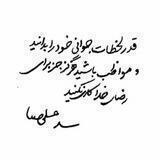 قدر لحظات جوانی خود را بدانید
و مواظب باشید هرگز جز برای
رضای خدا کار نکنید
سید علی